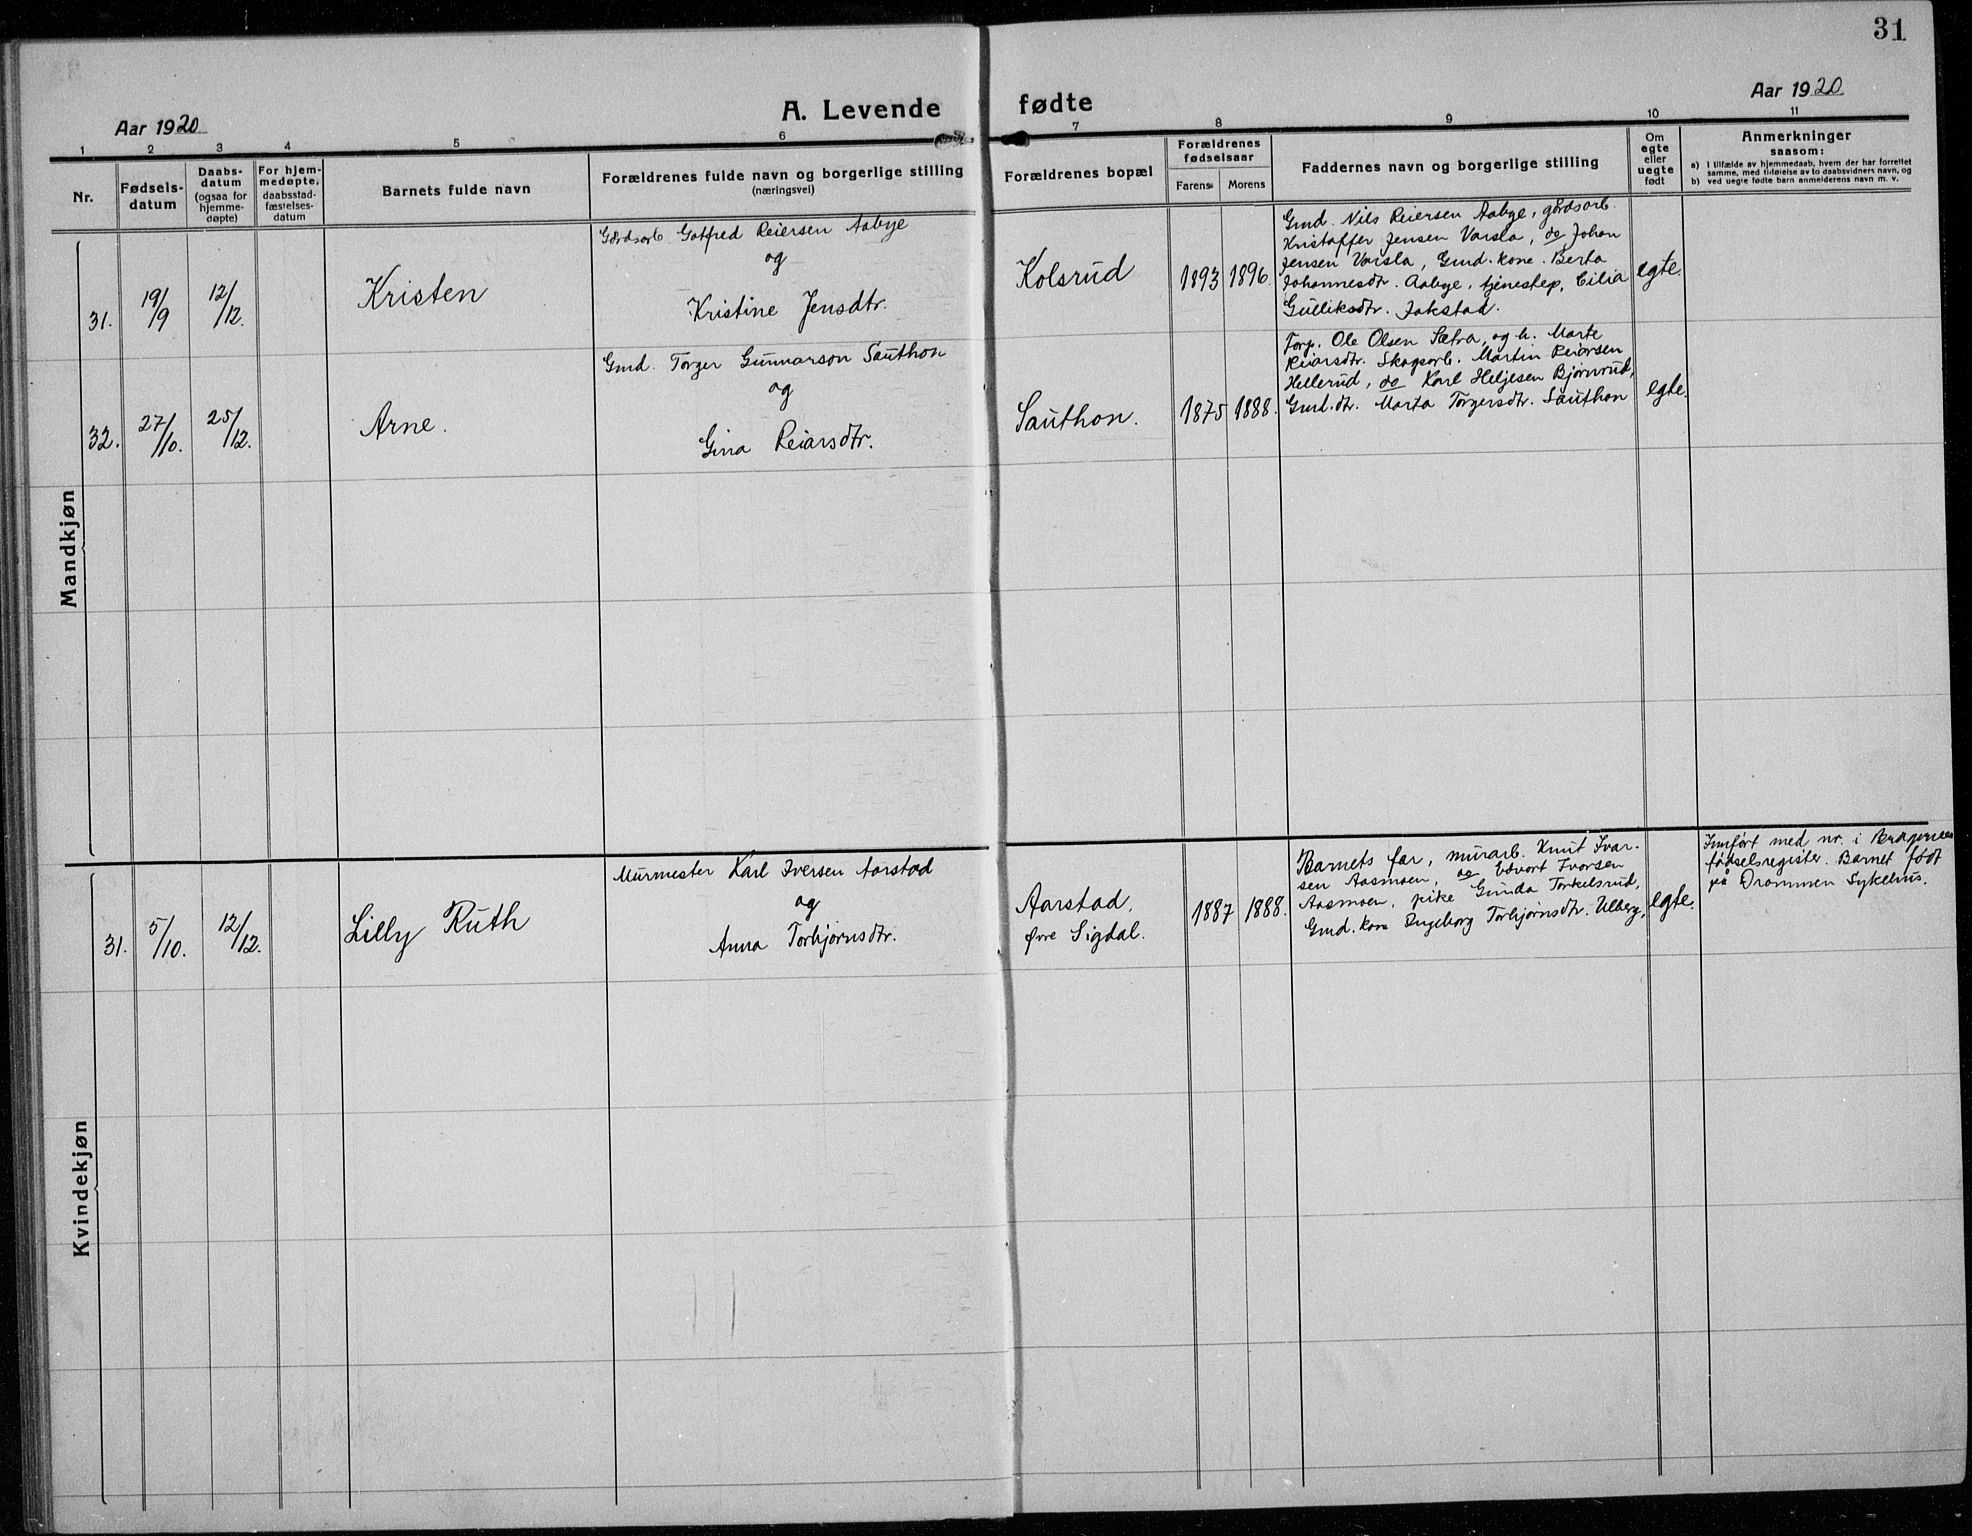 31
A. Levende fødte
Aar 1920
Aar 1920
1 2 3 4 5 6 7 8 9 10 11
Nr.
Fødsels-
datum
Daabs-
datum
(ogsaa for
hjemme-
døpte)
For hjem-
medøpte,
daabsstad-
fæstelses-
datum
Barnets fulde navn
Forældrenes fulde navn og borgerlige stilling
(næringsvei)
Forældrenes bopæl
Forældrenes
fødselsaar
Farens Morens
Faddernes navn og borgerlige stilling
Om
egte
eller
uegte
født
Anmerkninger
saasom:
a) I tilfælde av hjemmedaab, hvem der har forrettet
samme, med tilføielse av to daabsvidners navn, og
b) ved uegte fødte barn anmelderens navn m. v.
Mandkjøn
31.
19/9
12/12.
Kristen
Gårdsarb. Gotfred Reiersen Aabye
og
Kristine Jensdtr.
Kolsrud
1893 1896.
Gmd. Nils Reiersen Aabye, gårdsarb.
Kristoffer Jensen Varsla, do Johan
Jensen Varsla, Gmd. kone. Berta
Johannesdtr. Aabye, tjenestep. Cilia
Gulliksdtr. Jokstad.
egte.
32.
27/10.
25/12.
Arne.
Gmd. Torger Gunnarson Sauthon
og
Gina Reiarsdtr.
Sauthon.
1875 1888.
Forp. Ole Olsen Sætra, og h. Marte
Reiarsdtr. Skogsarb. Martin Reiarsen
Hellerud, do Karl Heljesen Bjørnrud,
Gmd. dtr. Marta Torgersdtr. Sauthon
egte.
Kvindekjøn
31.
5/10.
12/12.
Lilly Ruth
Murmester Karl Iversen Aarstad
og
Anna Torbjørnsdtr.
Aarstad,
Øvre Sigdal.
1887 1888.
Barnets far, murarb. Knut Ivar-
sen Aasmoen, do Edvart Ivarsen
Aasmoen, pike Gunda Torkelsrud,
Gmd. kone Ingeborg Torbjørnsdtr. Ulberg,
egte.
Innført med nr. i Bragernes
fødselsregister. Barnet født
på Drammen Sykehus.